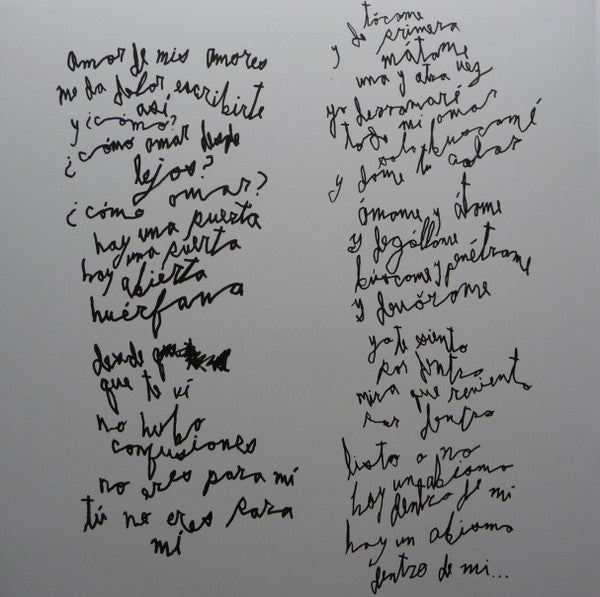 amor de mis amores
me da dolor escribirte
así
y ¿cómo?
¿cómo amar desde
lejos?
¿cómo amar?
hay una puerta
hay una puerta
abierta
huérfana
desde
que te vi
no hubo
confusiones
no eres para mí
tú no eres para
mí
y
tócame
primera
y mátame
una y otra vez
yo derramaré
todo mi amor
solo búscame
y dame tu
ámame y átame
y dególlame
búscame y penétrame
y devórame
ya te siento
por dentro
mira que reviento
por dentro
listo o no
hay un abismo
dentro de mi
hay un abismo
dentro de mi...